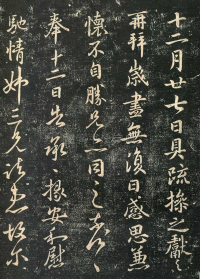 十二月廿七日具疏操之獻
再拜歲盡無復日感思兼
懷不自勝兄之同之
奉十二日告承安和慰
馳情姊二兄諸患故尔